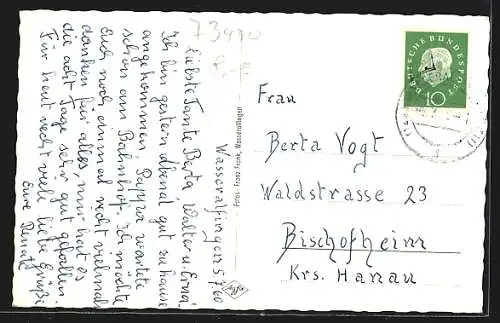 73430
Wasseralfingen 5.7.60
Liebste Tante Berta, Walter u. Erna!
Ich bin gestern abend gut zu hause
angekommen. Pappa wartete
schon am Bahnhof. Ich möchte
Euch noch einmal recht vielmals
danken für alles, mir hat es
die acht Tage sehr gut gefallen.
Für heut recht viele liebe Grüße
Eure Renate
Franz
DEUTSCHE BUNDESPOST
10
Frau
Berta Vogt
Waldstrasse 23
Bischofheim
Krs. Hanau